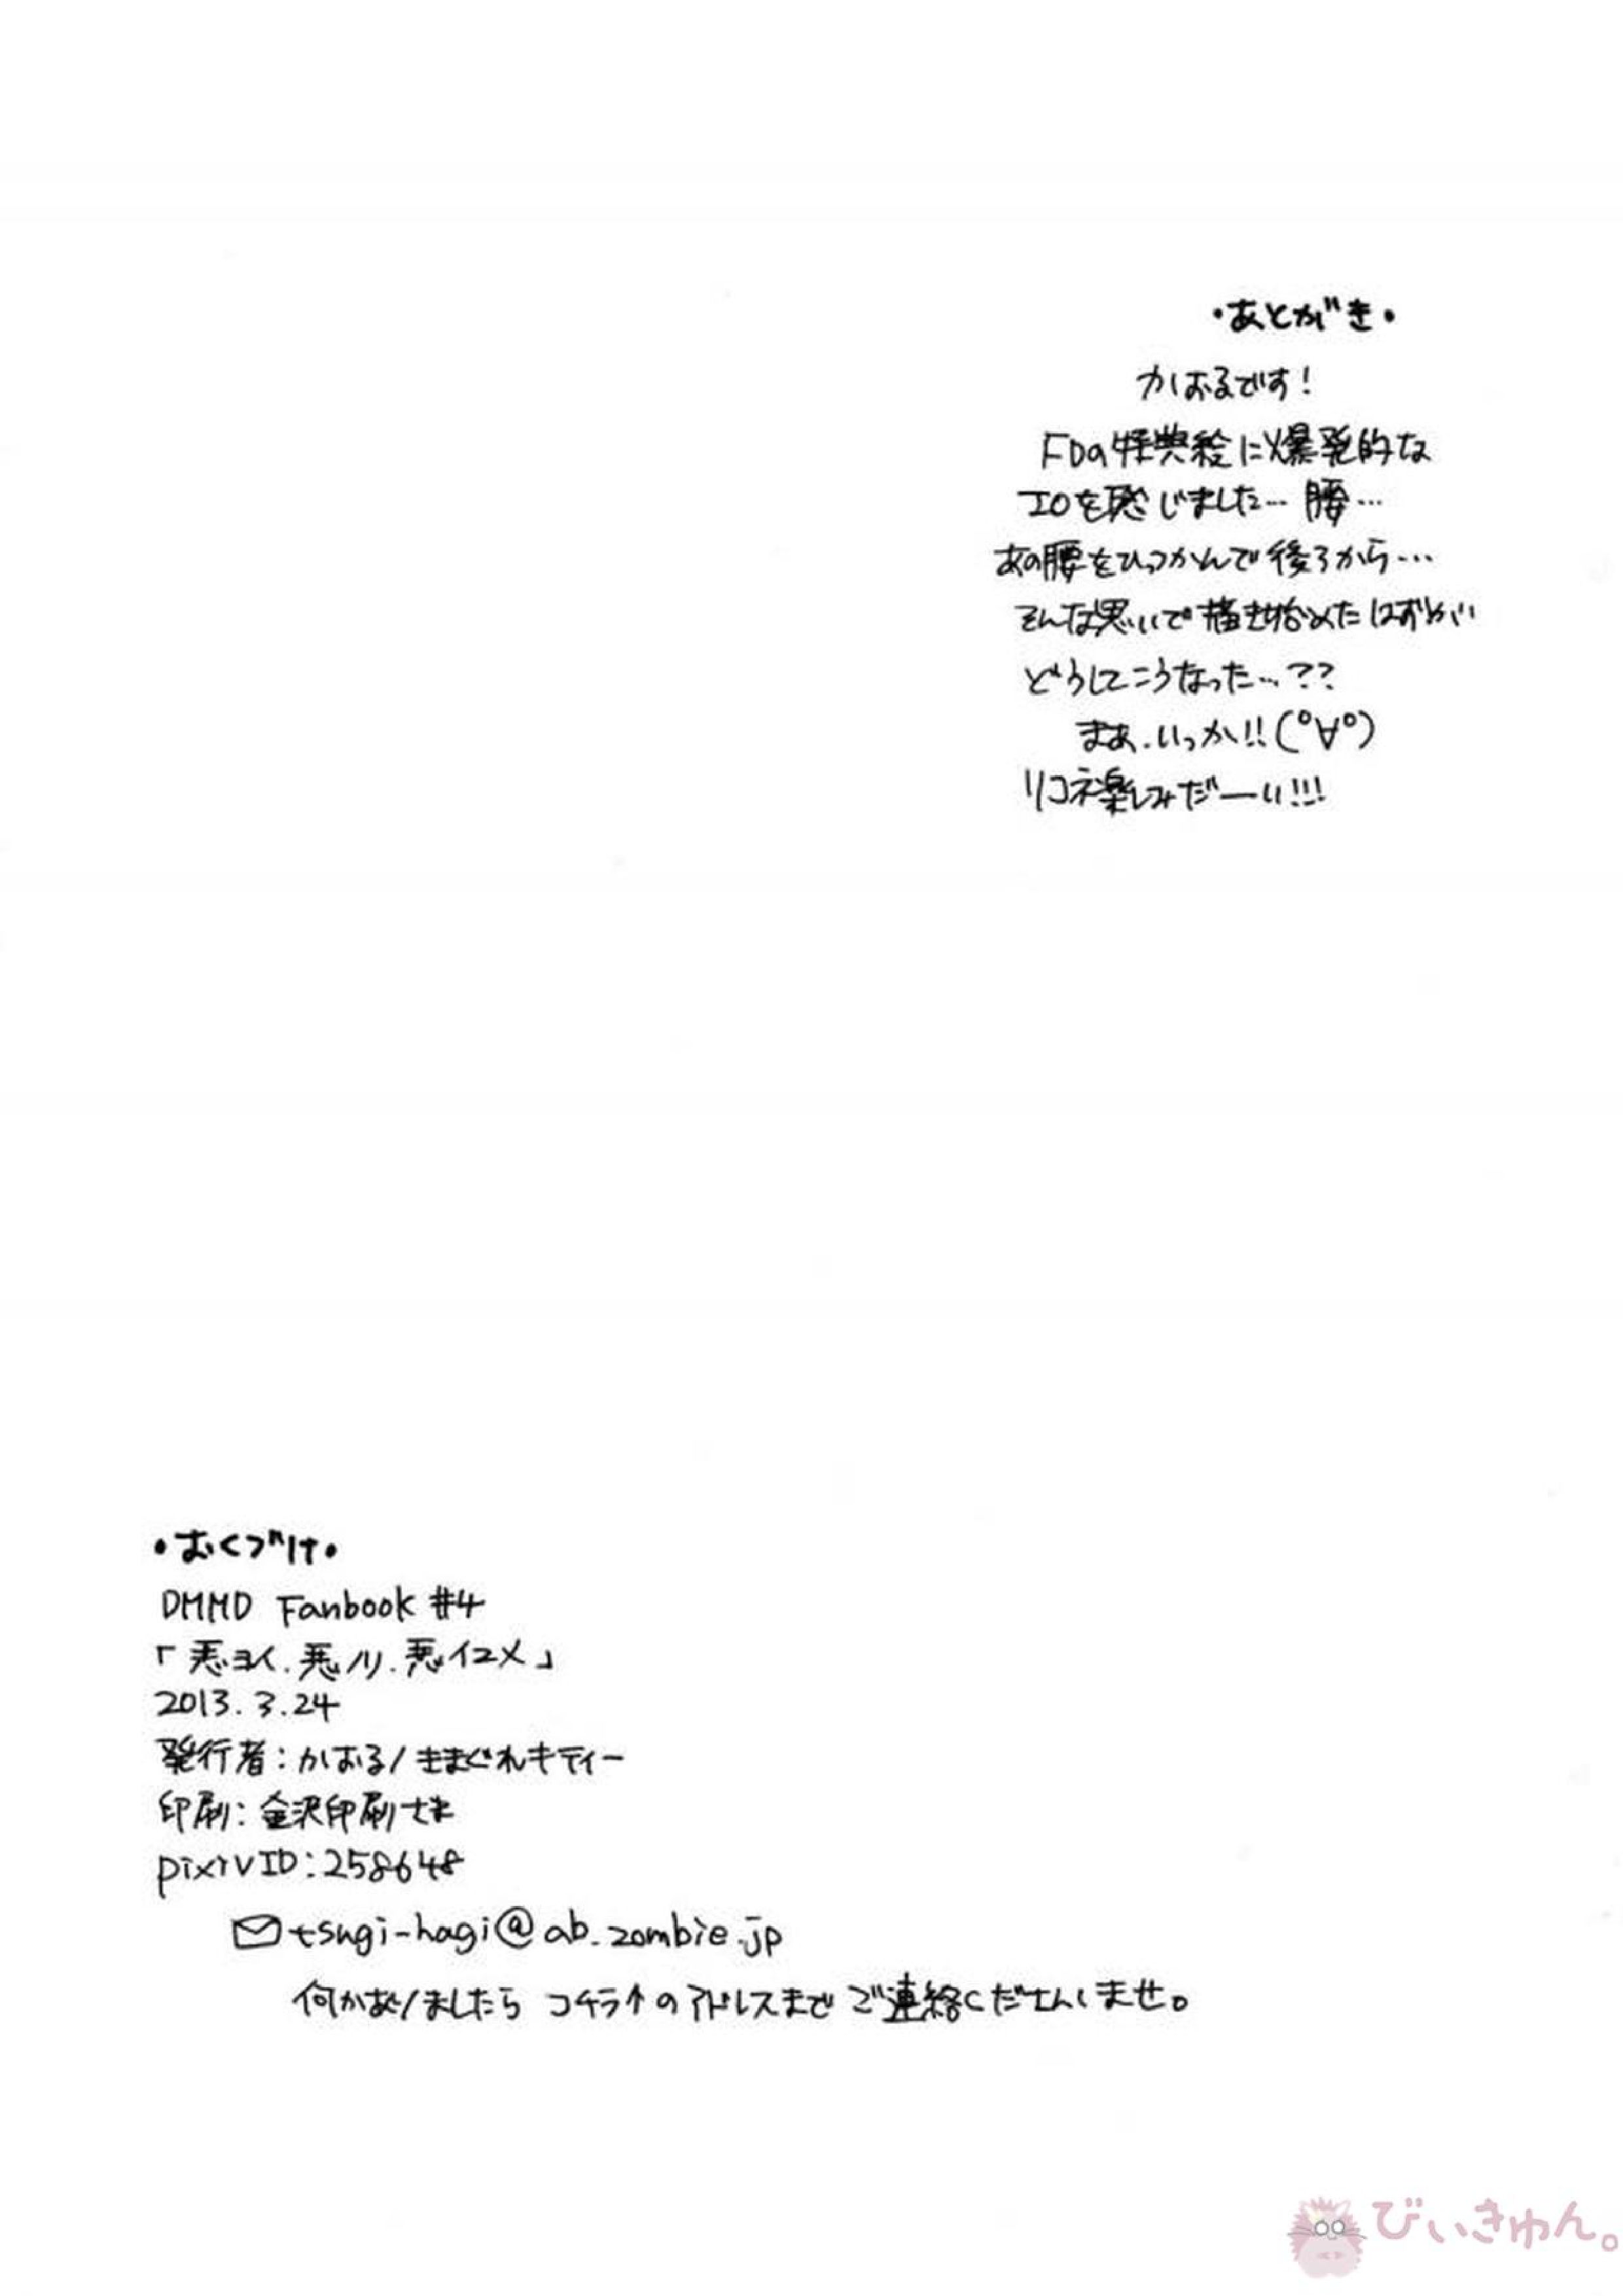 ・あとがき・
かおるです!
FDの特典絵に爆発的な
エロを感じました…腰…
あの腰をひっつかんで後ろから…
そんな思いで描き始めたはずが
どうしてこうなった…??
まあ、いっか!!(゜∀゜)
リコネ楽しみだーい!!!
・おくづけ・
DMMD Fanbook #4
「悪ヨイ、悪ノリ、悪イユメ」
2013.3.24
発行者:かおる/きまぐれキティー
印刷:金沢印刷さま
pixivID:258648
tsugi-hagi@ab.zombie.jp
何かありましたら コチラ↑のアドレスまで ご連絡くださいませ。
びぃきゅん。